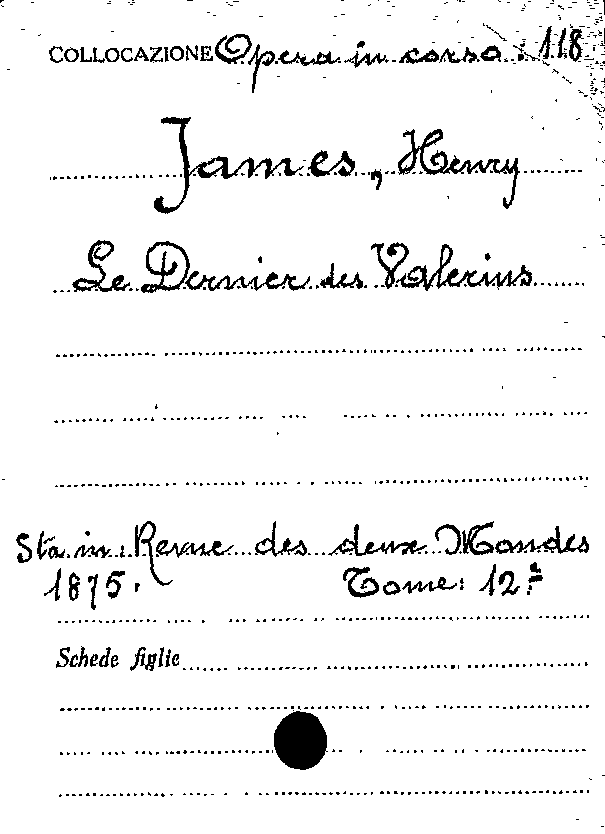 COLLOCAZIONE Opera in corso : 118
James, Henry
Le Dernier des Valerius
Sta in: Revue des deux Mondes
1875. Tome: 12º
Schede figlie